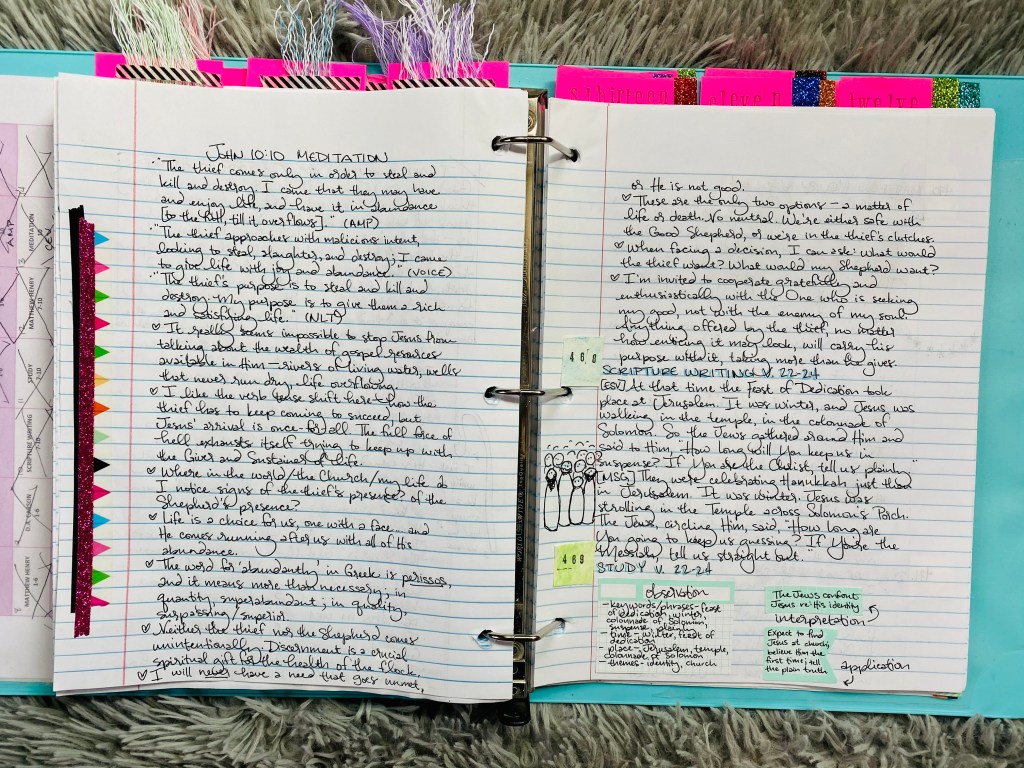 JOHN 10:10 MEDITATION
"The thief comes only in order to steal and
kill and destroy. I came that they may have
and enjoy life, and have it in abundance
[to the full, till it overflows]." (AMP)
"The thief approaches with malicious intent,
looking to steal, slaughter, and destroy; I came
to give life with joy and abundance." (VOICE)
"The thief's purpose is to steal and kill and
destroy. My purpose is to give them a rich
and satisfying life." (NLT)
♡ It really seems impossible to stop Jesus from
talking about the wealth of gospel resources
available in Him—rivers of living water, wells
that never run dry, life overflowing.
♡ I like the verb tense shift here—how the
thief has to keep coming to succeed, but
Jesus' arrival is once-for-all. The full force of
hell exhausts itself trying to keep up with
the Giver and Sustainer of life.
♡ Where in the world/the Church/my life do
I notice signs of the thief's presence? of the
Shepherd's presence?
♡ Life is a choice for us, one with a face... and
He comes running after us with all of His
abundance.
♡ The word for 'abundantly' in Greek is perissos,
and it means more than necessary; in
quantity, superabundant; in quality,
surpassing/superior.
♡ Neither the thief nor the Shepherd comes
unintentionally. Discernment is a crucial
spiritual gift for the health of the flock.
♡ I will never have a need that goes unmet,
or He is not good.
♡ These are the only two options—a matter of
life or death. No neutral. We're either safe with
the Good Shepherd, or we're in the thief's clutches.
♡ When facing a decision, I can ask: what would
the thief want? What would my Shepherd want?
♡ I'm invited to cooperate gratefully and
enthusiastically with the One who is seeking
my good, not with the enemy of my soul.
Anything offered by the thief, no matter
how enticing it may look, will carry his
purpose with it, taking more than he gives.
468
SCRIPTURE WRITING V. 22-24
[ESV] At that time the Feast of Dedication took
place at Jerusalem. It was winter, and Jesus was
walking in the temple, in the colonnade of
Solomon. So the Jews gathered around Him and
said to Him, "How long will You keep us in
suspense? If You are the Christ, tell us plainly."
[MSG] They were celebrating Hanukkah just then
in Jerusalem. It was winter. Jesus was
strolling in the Temple across Solomon's Porch.
The Jews, circling Him, said, "How long are
You going to keep us guessing? If You're the
Messiah, tell us straight out."
469
STUDY V. 22-24
observation
-keywords/phrases-feast
of dedication, winter,
colonnade of Solomon,
suspense, plainly
-time-winter, feast of
dedication
-place-Jerusalem, temple,
colonnade of Solomon
-themes-identity, church
The Jews confront
Jesus re: His identity
interpretation
Expect to find
Jesus at church;
believe Him the
first time; tell
the plain truth
application
thirteen
eleven
twelve
AMP
MEDITATION
MATTHEW HENRY
7-10
STUDY
7-10
SCRIPTURE WRITING
7-10
D.A. CARSON
1-6
MATTHEW HENRY
1-6